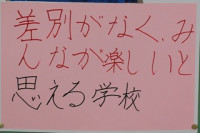 差別がなく、み
んなが楽しいと
思える学校